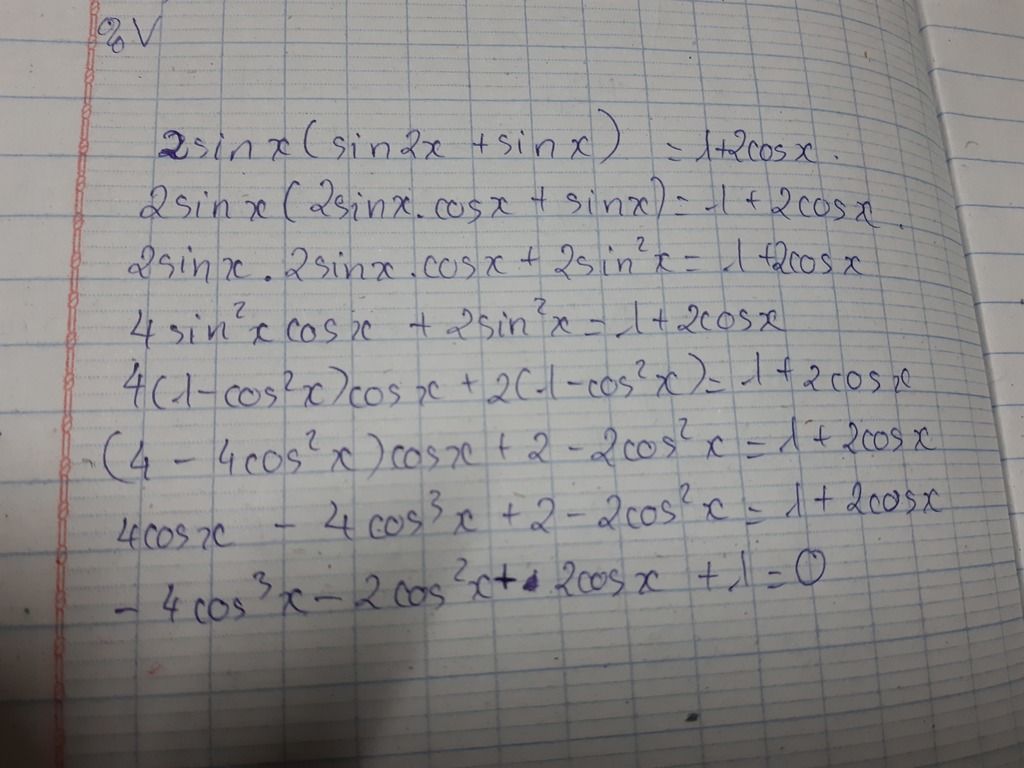 2sinx(sin2x + sinx) = 1+2cosx.
2sinx(2sinx.cosx + sinx) = 1 + 2cosx.
2sinx . 2sinx . cosx + 2sin²x = 1 + 2cosx
4sin²x cosx + 2sin²x = 1 + 2cosx
4(1-cos²x)cosx + 2(1-cos²x) = 1 + 2cosx
(4 - 4cos²x)cosx + 2 - 2cos²x = 1 + 2cosx
4cosx - 4cos³x + 2 - 2cos²x = 1 + 2cosx
- 4cos³x - 2cos²x + 2cosx + 1 = 0